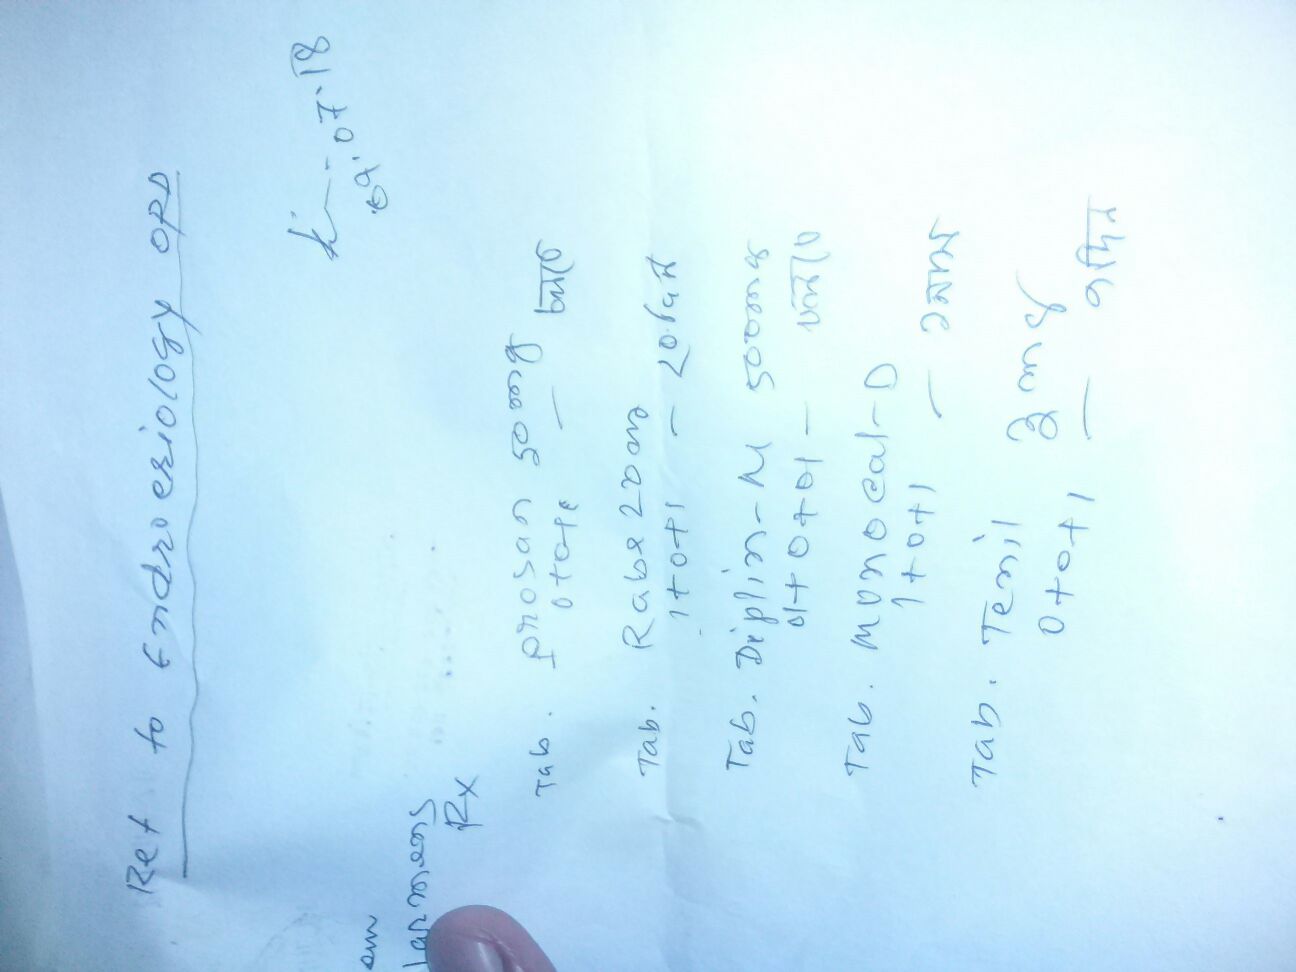 Ref to Endrocriology OPD
09.07.18
Rx
Tab. Prosan 50mg
0+0+1 — চলবে
Tab. Rabe 20mg
1+0+1 —
Tab. Diplin-M 500mg
01+0+01 — চলবে
Tab. Monocal-D
1+0+1 — ১মাস
Tab. Tenil 3mg
0+0+1 — ৭দিন